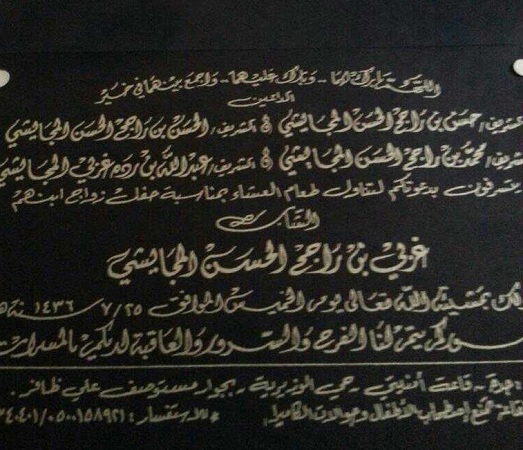 اللهم بارك لهما - وبارك عليهما - واجمع بينهما في خير
الداعين
الشريف/ حسن بن راجح الحسن المجايشي & الشريف/ الحسن بن راجح الحسن المجايشي
الشريف/ محمد بن راجح الحسن المجايشي & الشريف/ عبدالله بن رده غزلي المجايشي
يتشرفون بدعوتكم لتناول طعام العشاء بمناسبة حفل زواج ابنهم
الشاب
بن راجح الحسن المجايشي
بمشيئة الله تعالى يوم الخميس الموافق ٧/٢٥ / ١٤٣٦هـ
يتم لنا الفرح والسرور والعاقبة لديكم بالمسرات
جدة - قاعة - حي الوزيرية - بجوار مستوصف علي ظافر
يمنع اصطحاب الأطفال وجوالات الكاميرا * للاستفسار: ٠٥٠٠١٥٨٩٢١/